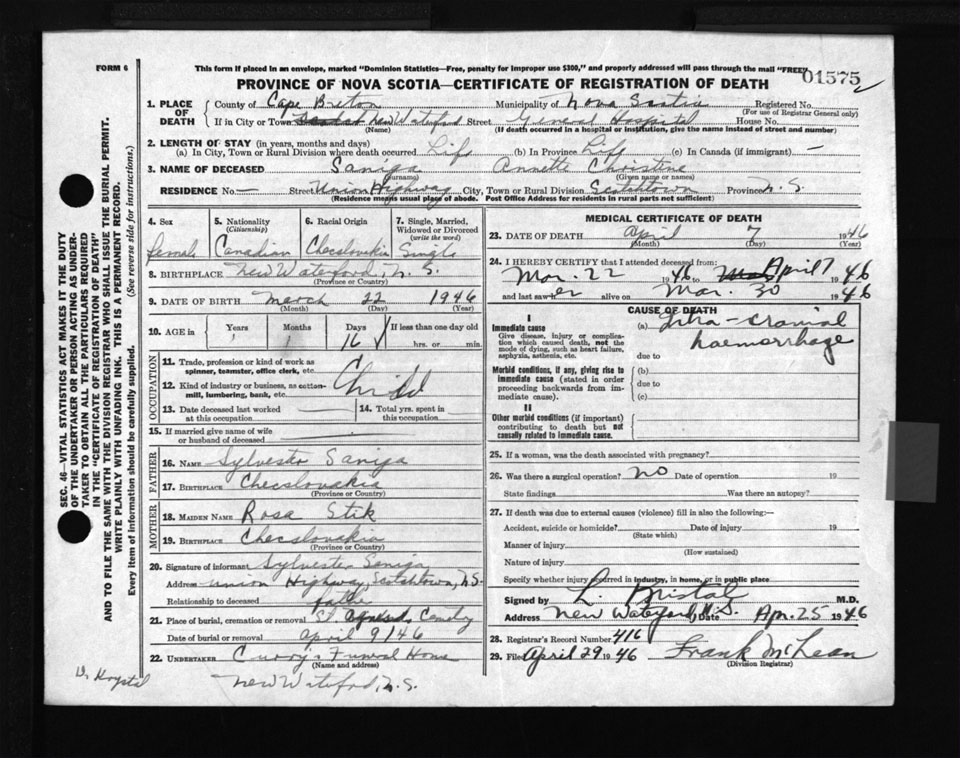 FORM 6
This form if placed in an envelope, marked "Dominion Statistics—Free, penalty for improper use $300," and properly addressed will pass through the mail "FREE"
01575
2
PROVINCE OF NOVA SCOTIA—CERTIFICATE OF REGISTRATION OF DEATH
1. PLACE OF DEATH
County of Cape Breton Municipality of Nova Scotia Registered No.
(For use of Registrar General only)
If in City or Town New Waterford Street General Hospital House No.
(Name) (If death occurred in a hospital or institution, give the name instead of street and number)
2. LENGTH OF STAY (in years, months and days)
(a) In City, Town or Rural Division where death occurred Life (b) In Province Life (c) In Canada (if immigrant) —
3. NAME OF DECEASED Saniga Annette Christine
(Surname) (Given name or names)
RESIDENCE No. — Street Union Highway City, Town or Rural Division Scotchtown Province N.S.
(Residence means usual place of abode. Post Office Address for residents in rural parts not sufficient)
4. Sex female
5. Nationality (Citizenship) Canadian
6. Racial Origin Checslovakia
7. Single, Married, Widowed or Divorced (write the word) Single
8. BIRTHPLACE New Waterford, N.S.
(Province or Country)
9. DATE OF BIRTH March 22 1946
(Month) (Day) (Year)
10. AGE in Years Months Days 16 If less than one day old
hrs. or min.
OCCUPATION
11. Trade, profession or kind of work as spinner, teamster, office clerk, etc.
12. Kind of industry or business, as cotton-mill, lumbering, bank, etc.
Child
13. Date deceased last worked at this occupation
14. Total yrs. spent in this occupation
15. If married give name of wife or husband of deceased
FATHER
16. NAME Sylvester Saniga
17. BIRTHPLACE Checslovakia
(Province or Country)
MOTHER
18. MAIDEN NAME Rosa Stik
19. BIRTHPLACE Checslovakia
(Province or Country)
20. Signature of informant Sylvester Saniga
Address Union Highway, Scotchtown, N.S.
Relationship to deceased father
21. Place of burial, cremation or removal St. Agnes Cemetry
Date of burial or removal April 9/46
22. UNDERTAKER Curry's Funeral Home
(Name and address)
New Waterford, N.S.
MEDICAL CERTIFICATE OF DEATH
23. DATE OF DEATH April 7 1946
(Month) (Day) (Year)
24. I HEREBY CERTIFY that I attended deceased from:
Mar. 22 1946 to April 7 1946
and last saw her alive on Mar. 30 1946
CAUSE OF DEATH
I
Immediate cause
Give disease, injury or complication which caused death, not the mode of dying, such as heart failure, asphyxia, asthenia, etc.
(a) Intra-cranial haemorrhage
due to
Morbid conditions, if any, giving rise to immediate cause (stated in order proceeding backwards from immediate cause).
(b)
due to
(c)
II
Other morbid conditions (if important) contributing to death but not causally related to immediate cause.
25. If a woman, was the death associated with pregnancy?
26. Was there a surgical operation? no Date of operation 19
State findings Was there an autopsy?
27. If death was due to external causes (violence) fill in also the following:—
Accident, suicide or homicide? Date of injury 19
(State which)
Manner of injury
(How sustained)
Nature of injury
Specify whether injury occurred in industry, in home, or in public place
Signed by L. Bristol M.D.
Address New Waterford, N.S. Date Apr. 25 1946
28. Registrar's Record Number 416
29. Filed April 29 1946 Frank McLean
(Division Registrar)
SEC. 46—VITAL STATISTICS ACT MAKES IT THE DUTY
OF THE UNDERTAKER OR PERSON ACTING AS UNDER-
TAKER TO OBTAIN ALL THE PARTICULARS REQUIRED
IN THE "CERTIFICATE OF REGISTRATION OF DEATH"
AND TO FILE THE SAME WITH THE DIVISION REGISTRAR WHO SHALL ISSUE THE BURIAL PERMIT.
WRITE PLAINLY WITH UNFADING INK. THIS IS A PERMANENT RECORD.
Every item of information should be carefully supplied. (See reverse side for instructions.)